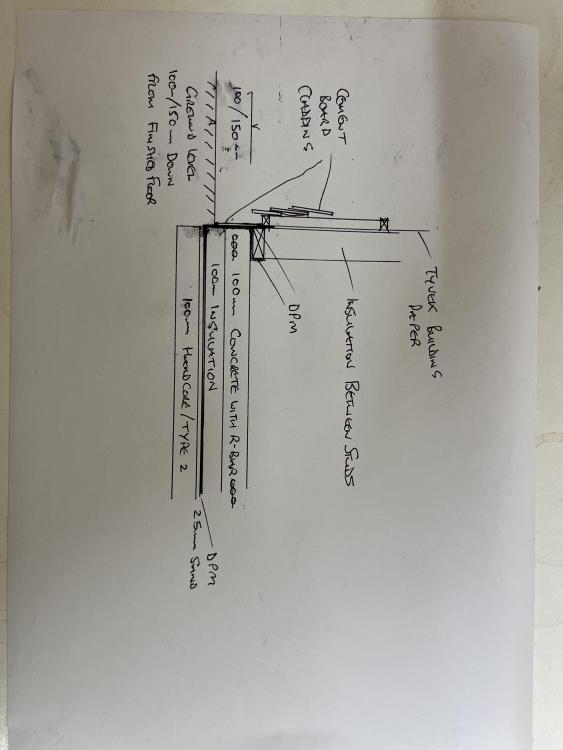 TYVEK BUILDING
PAPER
CEMENT
BOARD
CLADDING
INSULATION BETWEEN STUDS
DPM
100/150mm
100mm CONCRETE WITH R-BAR
100mm INSULATION
GROUND LEVEL
100mm/150mm DOWN
FROM FINISHED FLOOR
100mm HARDCORE/TYPE 2
DPM
25mm SAND